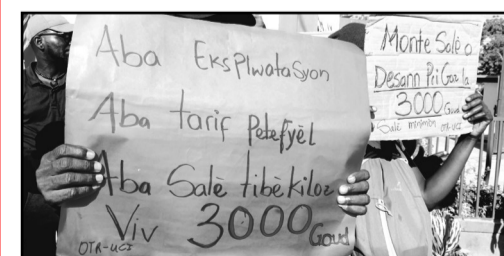 Aba Eksplwatasyon
Aba tarif Petefyèl
Aba Salè tibèkiloz
Viv 3000 Goud
OTR-UCI
Monte Salè a
Desann Pri Gaz la
3000 Goud
Salè minimòm OTR-UCI